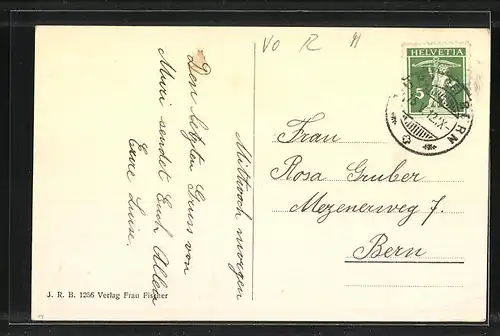 VO R
HELVETIA
5
BERN
Mittwoch morgen
Den letzten Gruss von
Muri sendet Euch Allen
Eure Luise.
Frau
Rosa Gruber
Mezenerweg 7.
Bern
J. R. B. 1256 Verlag Frau Fischer